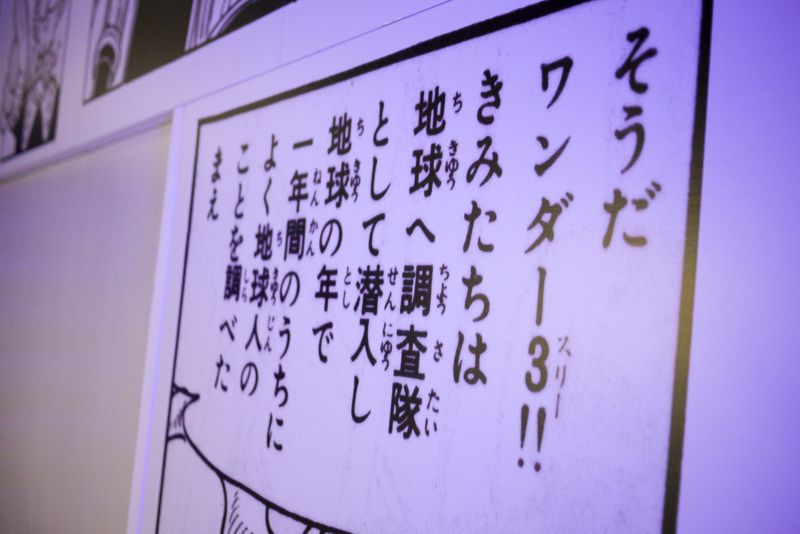 そうだ
ワンダー3!!
きみたちは
地球へ調査隊
として潜入し
地球の年で
一年間のうちに
よく地球人の
ことを調べた
まえ